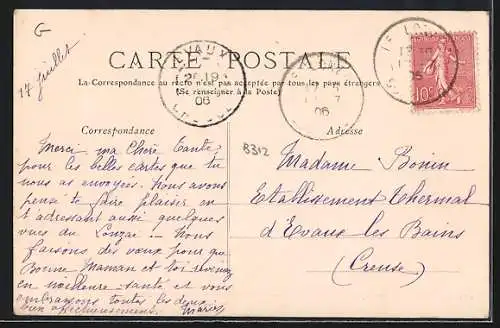 G
17 juillet
CARTE POSTALE
La Correspondance au recto n'est pas acceptée par tous les pays étrangers
(Se renseigner à la Poste)
EVAUX
19
06
06
10c
Correspondance
Adresse
B312
Merci ma Chère Tante
pour ces belles cartes que tu
nous as envoyées. Nous avons
pensé te faire plaisir en
t'adressant aussi quelques
vues du Nous
faisons des vœux pour que
Bonne Maman et toi
en meilleure santé et vous
embrassons toutes les deux
bien affectueusement. Marie
Madame Bonin
Etablissement Thermal
d'Evaux les Bains
(Creuse)